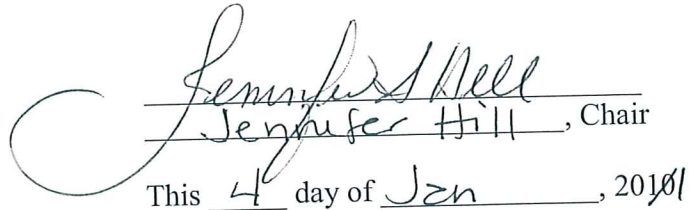 Jennifer S Hill
Jennifer Hill, Chair
This 4 day of Jan, 2011